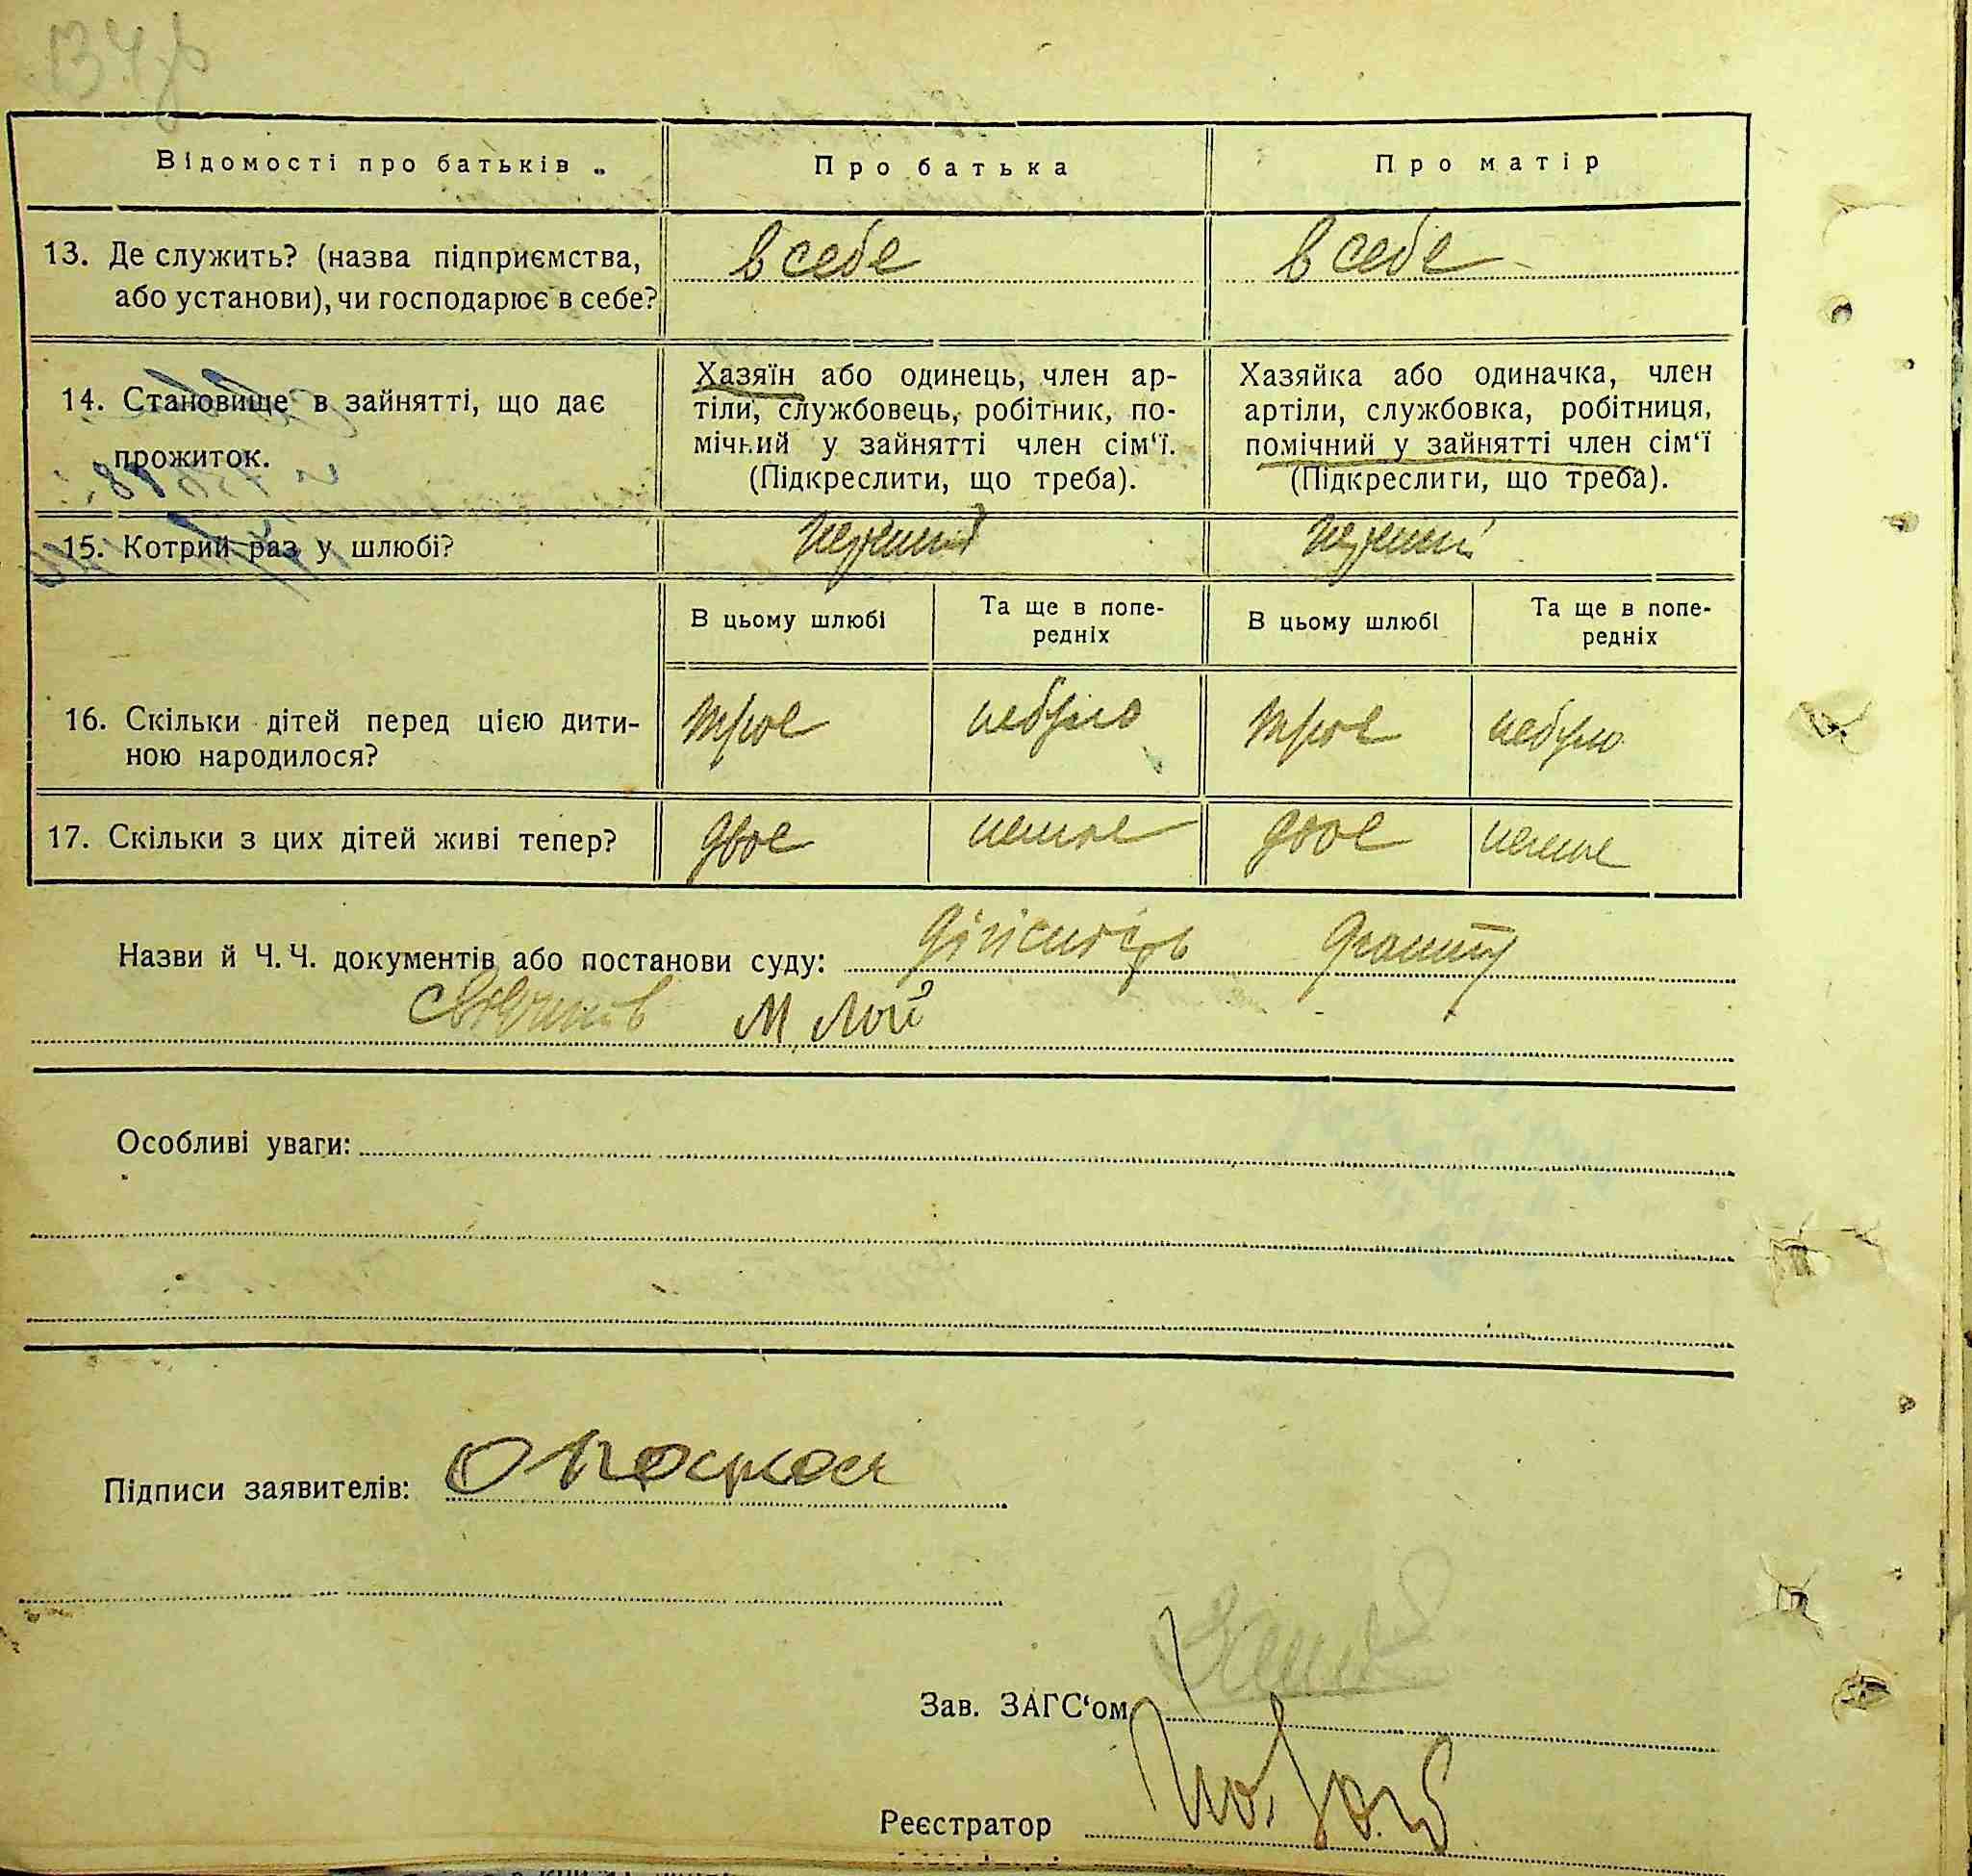 Відомості про батьків
Про батька
Про матір
13. Де служить? (назва підприємства, або установи), чи господарює в себе?
в себе
в себе
14. Становище в зайнятті, що дає прожиток.
Хазяїн або одинець, член ар-
тіли, службовець, робітник, по-
мічний у зайнятті член сім‘ї.
(Підкреслити, що треба).
Хазяйка або одиначка, член
артіли, службовка, робітниця,
помічний у зайнятті член сім‘ї
(Підкреслити, що треба).
15. Котрий раз у шлюбі?
перший
перший
В цьому шлюбі
Та ще в попе-
редніх
В цьому шлюбі
Та ще в попе-
редніх
16. Скільки дітей перед цією дити-
ною народилося?
трое
небуло
трое
небуло
17. Скільки з цих дітей живі тепер?
двое
немае
двое
немае
Назви й Ч. Ч. документів або постанови суду: дійсність
М Лой
Особливі уваги:
Підписи заявителів:
Зав. ЗАГС‘ом
Реєстратор